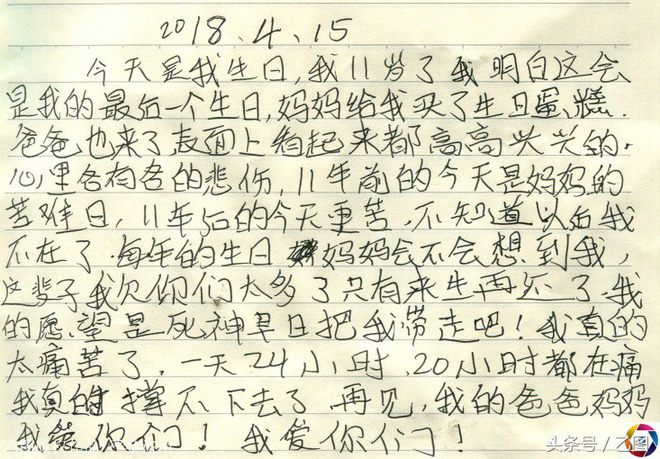 2018.4.15
今天是我生日,我11岁了我明白这会
是我的最后一个生日,妈妈给我买了生日蛋糕.
爸爸也来了,表面上看起来都高高兴兴的.
心里各有各的悲伤,11年前的今天是妈妈的
苦难日,11年后的今天更苦.不知道以后我
不在了.每年的生日妈妈会不会想到我,
这辈子我欠你们太多了只有来生再还了.我
的愿望是死神早日把我带走吧!我真的
太痛苦了,一天24小时,20小时都在痛
我真的撑不下去了.再见,我的爸爸妈妈
我爱你们!我爱你们!
头条号/